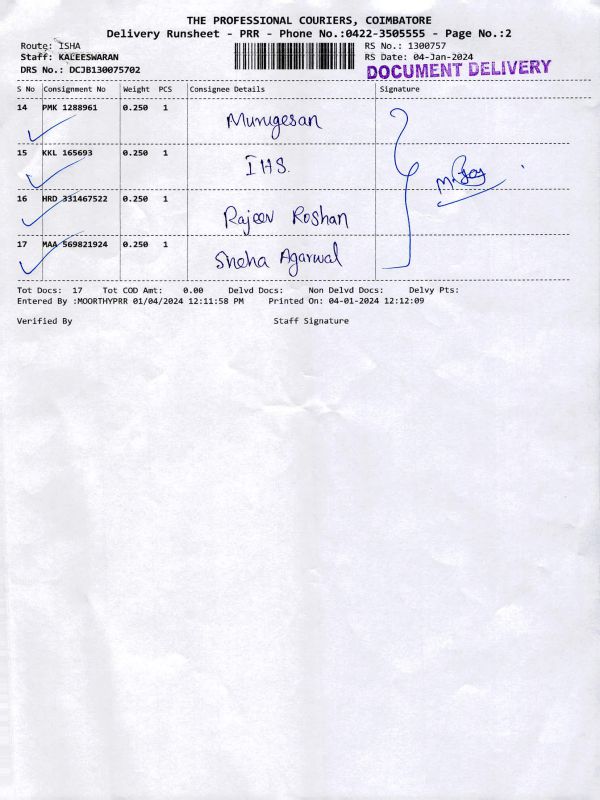 THE PROFESSIONAL COURIERS, COIMBATORE
Delivery Runsheet - PRR - Phone No.:0422-3505555 - Page No.:2
Route: ISHA RS No.: 1300757
Staff: KALEESWARAN RS Date: 04-Jan-2024
DRS No.: DCJB130075702 DOCUMENT DELIVERY
S No Consignment No Weight PCS Consignee Details Signature
14 PMK 1288961 0.250 1 Murugesan
15 KKL 165693 0.250 1 IHS.
16 HRD 331467522 0.250 1 Rajeev Roshan
17 MAA 569821924 0.250 1 Sneha Agarwal
Tot Docs: 17 Tot COD Amt: 0.00 Delvd Docs: Non Delvd Docs: Delvy Pts:
Entered By :MOORTHYPRR 01/04/2024 12:11:58 PM Printed On: 04-01-2024 12:12:09
Verified By Staff Signature